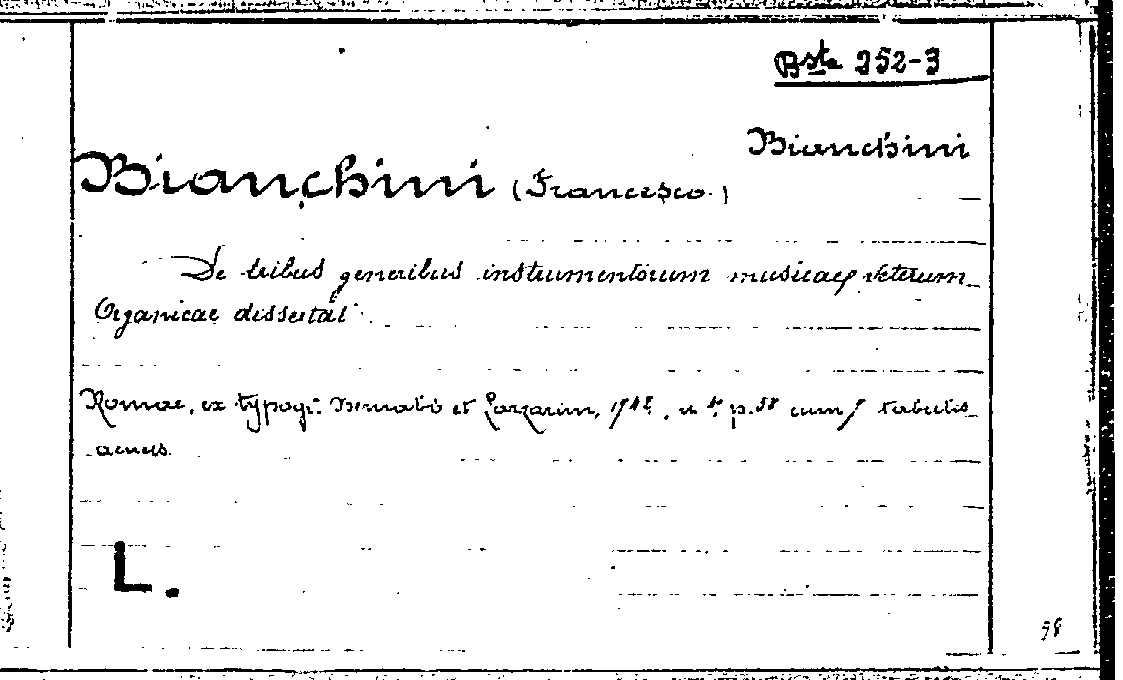 Bsta 252-3
Bianchini
Bianchini (Francesco)
De tribus generibus instrumentorum musicae veterum
Organicae dissertat
Romae, ex typogr. et 1742, p. 58 cum tabulis
aeneis
L.